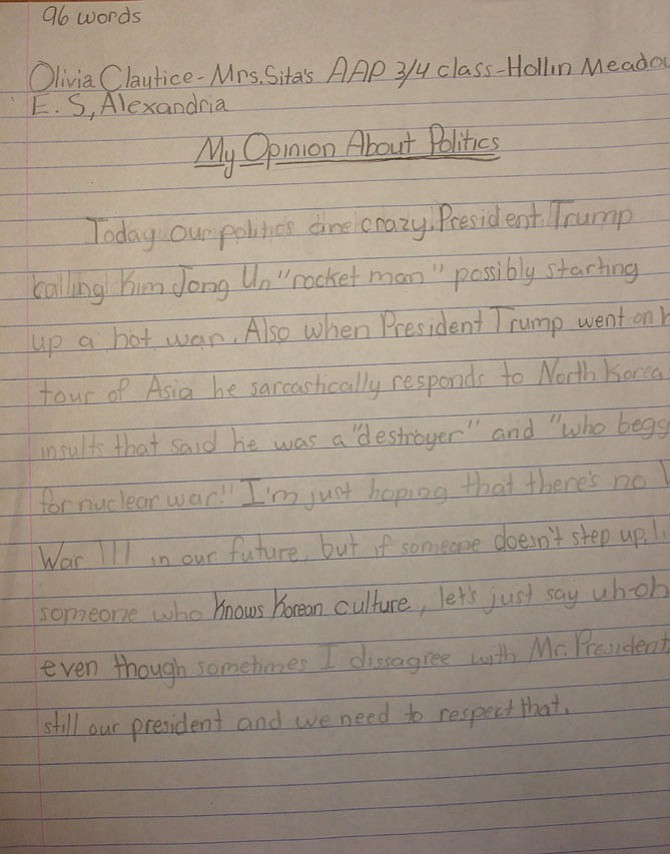 96 words
Olivia Clautice - Mrs. Sita's AAP 3/4 class - Hollin Meadow
E. S, Alexandria
My Opinion About Politics
Today our politics are crazy. President Trump
calling Kim Jong Un "rocket man" possibly starting
up a hot war. Also when President Trump went on
tour of Asia he sarcastically responds to North Korea
insults that said he was a "destroyer" and "who begg
for nuclear war!" I'm just hoping that there's no
War III in our future, but if someone doesn't step up,
someone who knows Korean culture, let's just say uh-oh
even though sometimes I dissagree with Mr. President
still our president and we need to respect that.